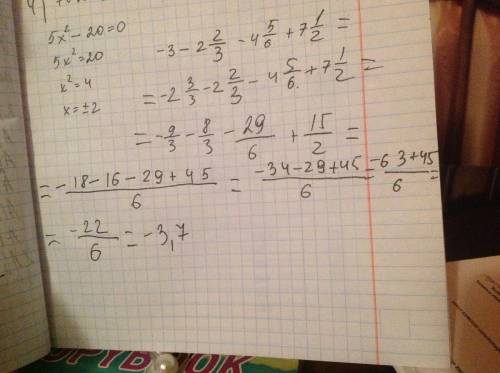 5x² - 20 = 0
5x² = 20
x² = 4
x = ±2
-3 - 2 2/3 - 4 5/6 + 7 1/2 =
= -2 3/3 - 2 2/3 - 4 5/6 + 7 1/2 =
= -9/3 - 8/3 - 29/6 + 15/2 =
= -18-16-29+45/6 = -34-29+45/6 = -63+45/6 =
= -22/6 = -3,7
COPYBOOK